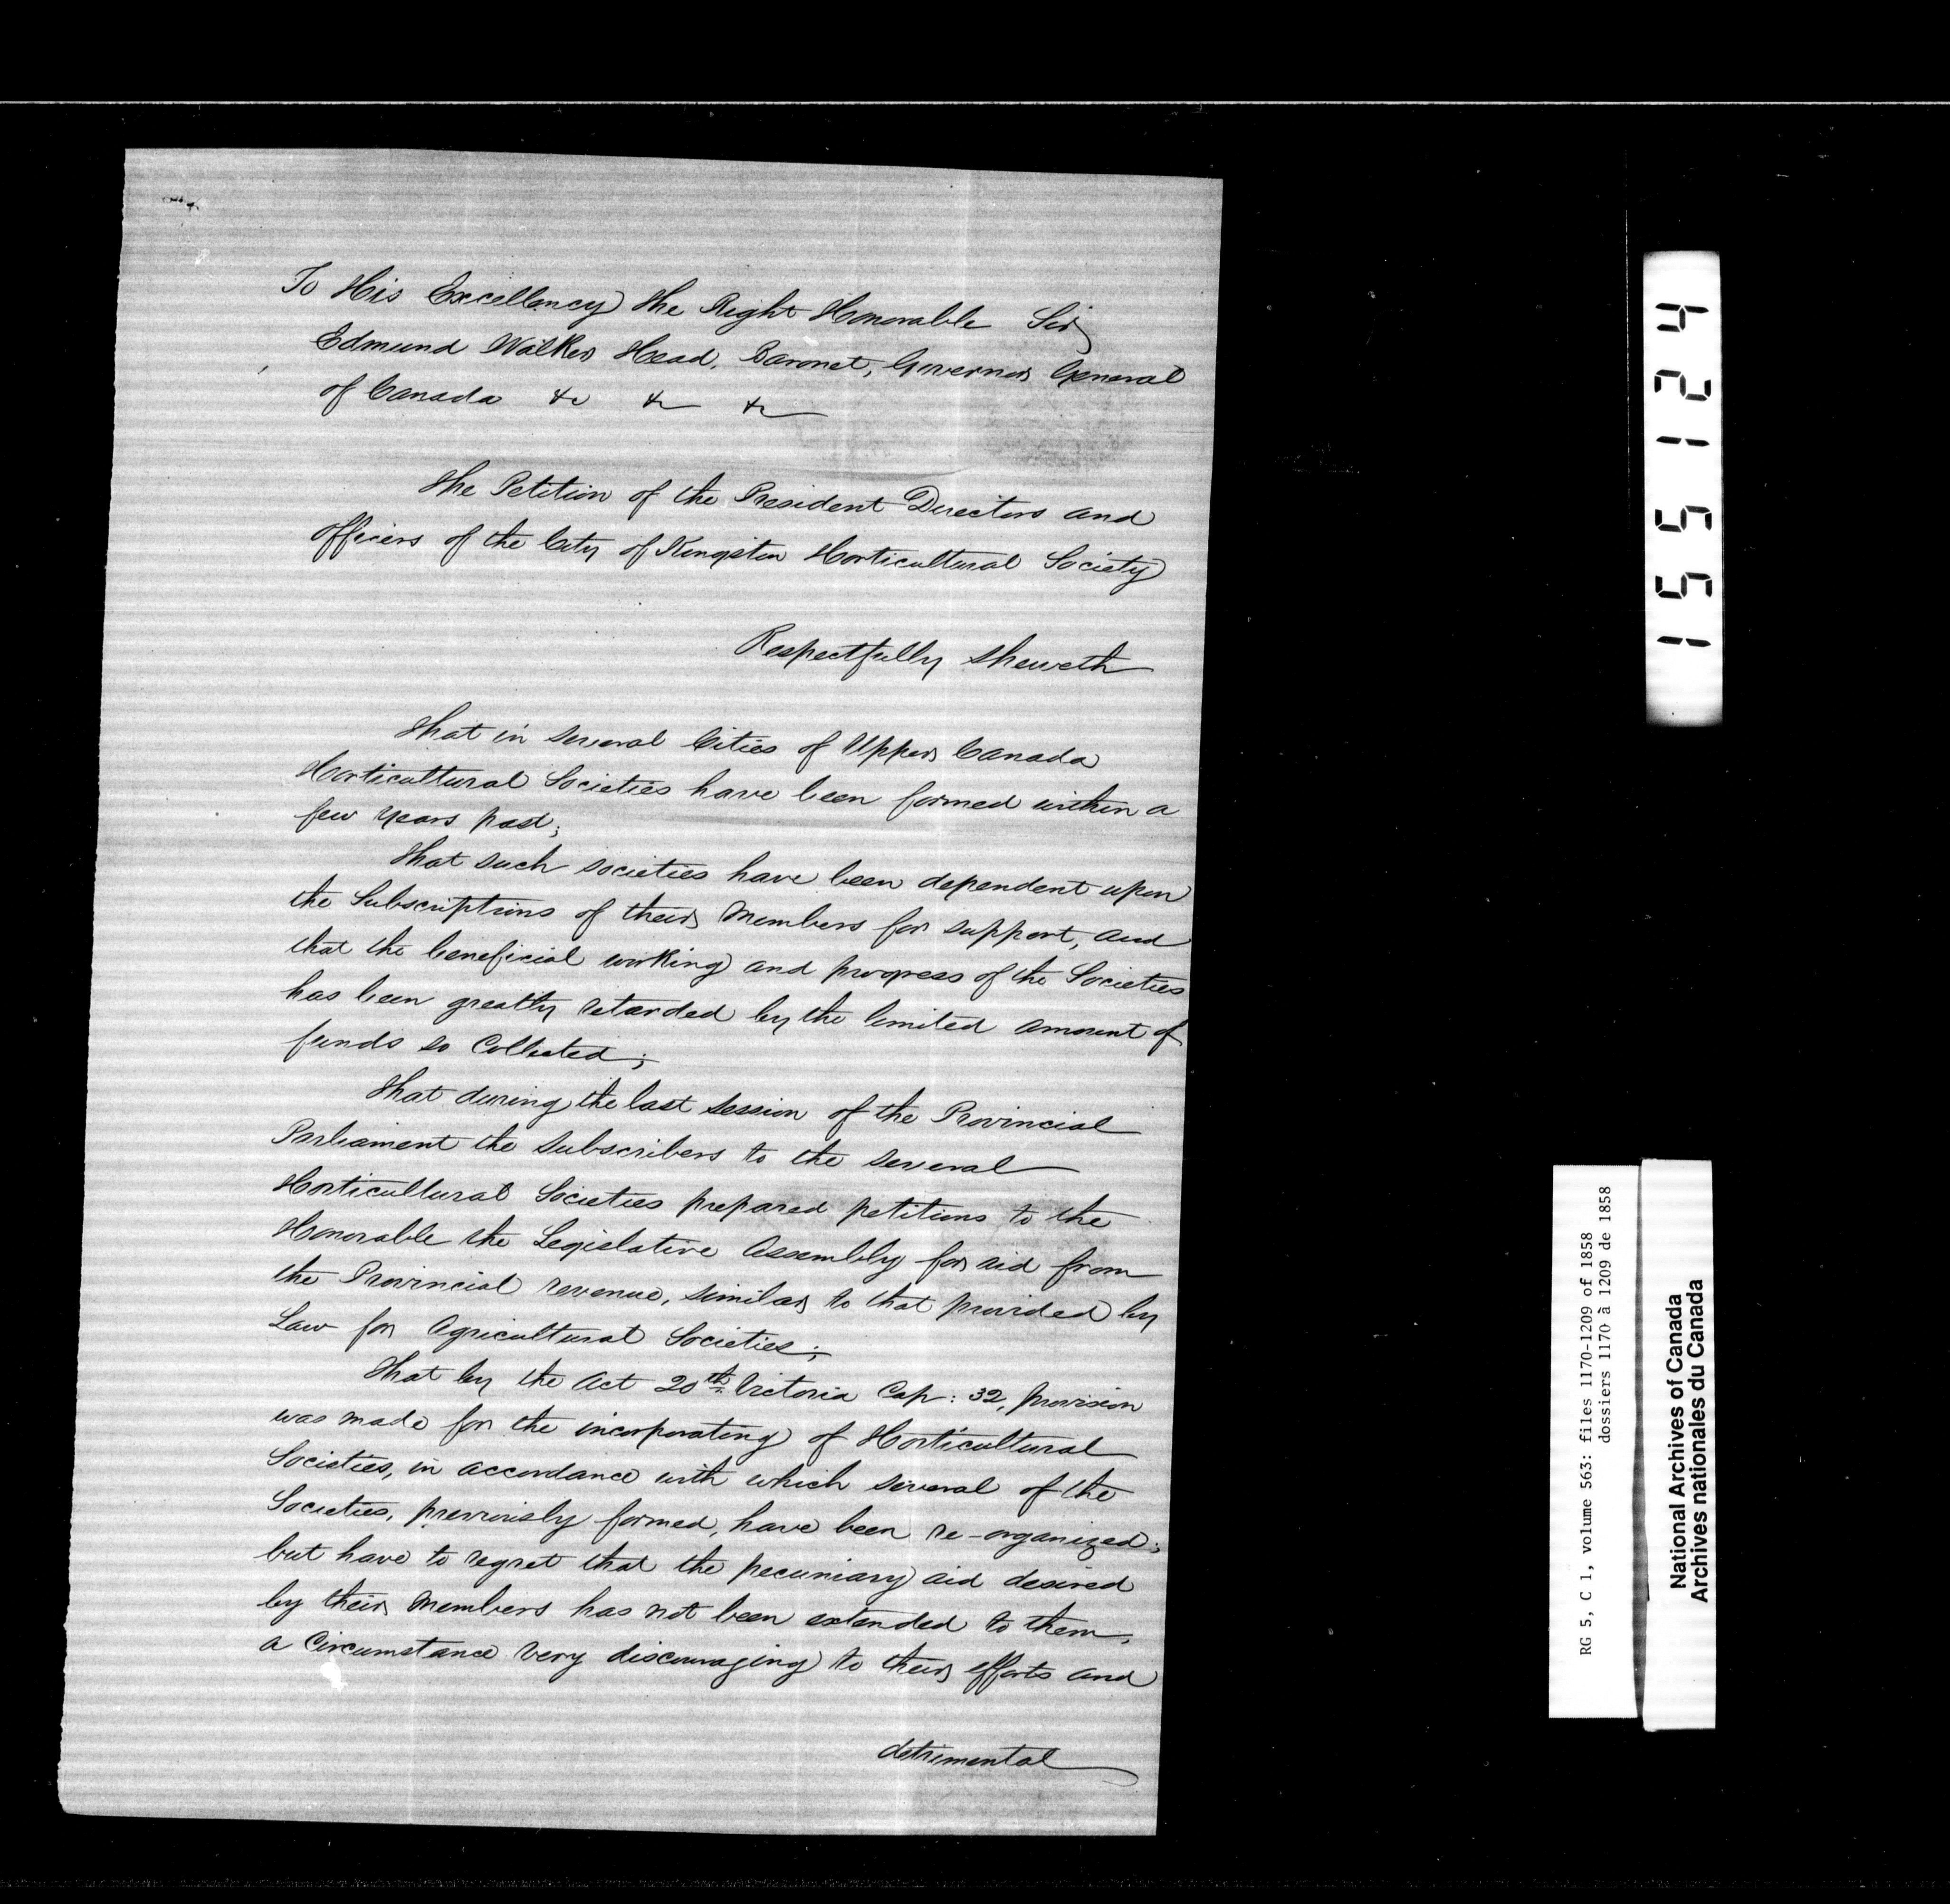 To His Excellency the Right Honorable Sir
Edmund Walker Head, Baronet, Governor General
of Canada &c &c &c
The Petition of the President Directors and
Officers of the City of Kingston Horticultural Society
Respectfully Sheweth
That in several Cities of Upper Canada
Horticultural Societies have been formed within a
few years past;
That such societies have been dependent upon
the Subscriptions of their Members for support, and
that the beneficial working and progress of the Societies
has been greatly retarded by the limited amount of
funds so Collected;
That during the last session of the Provincial
Parliament the subscribers to the several
Horticultural Societies prepared petitions to the
Honorable the Legislative Assembly for aid from
the Provincial revenue, similar to that provided by
Law for Agricultural Societies;
That by the Act 20th Victoria Cap: 32, provision
was made for the incorporating of Horticultural
Societies, in accordance with which several of the
Societies, previously formed, have been re-organized;
but have to regret that the pecuniary aid desired
by their Members has not been extended to them,
a Circumstance very discouraging to their efforts and
detrimental
155124
RG 5, C 1, volume 563: files 1170-1209 of 1858
dossiers 1170 à 1209 de 1858
National Archives of Canada
Archives nationales du Canada